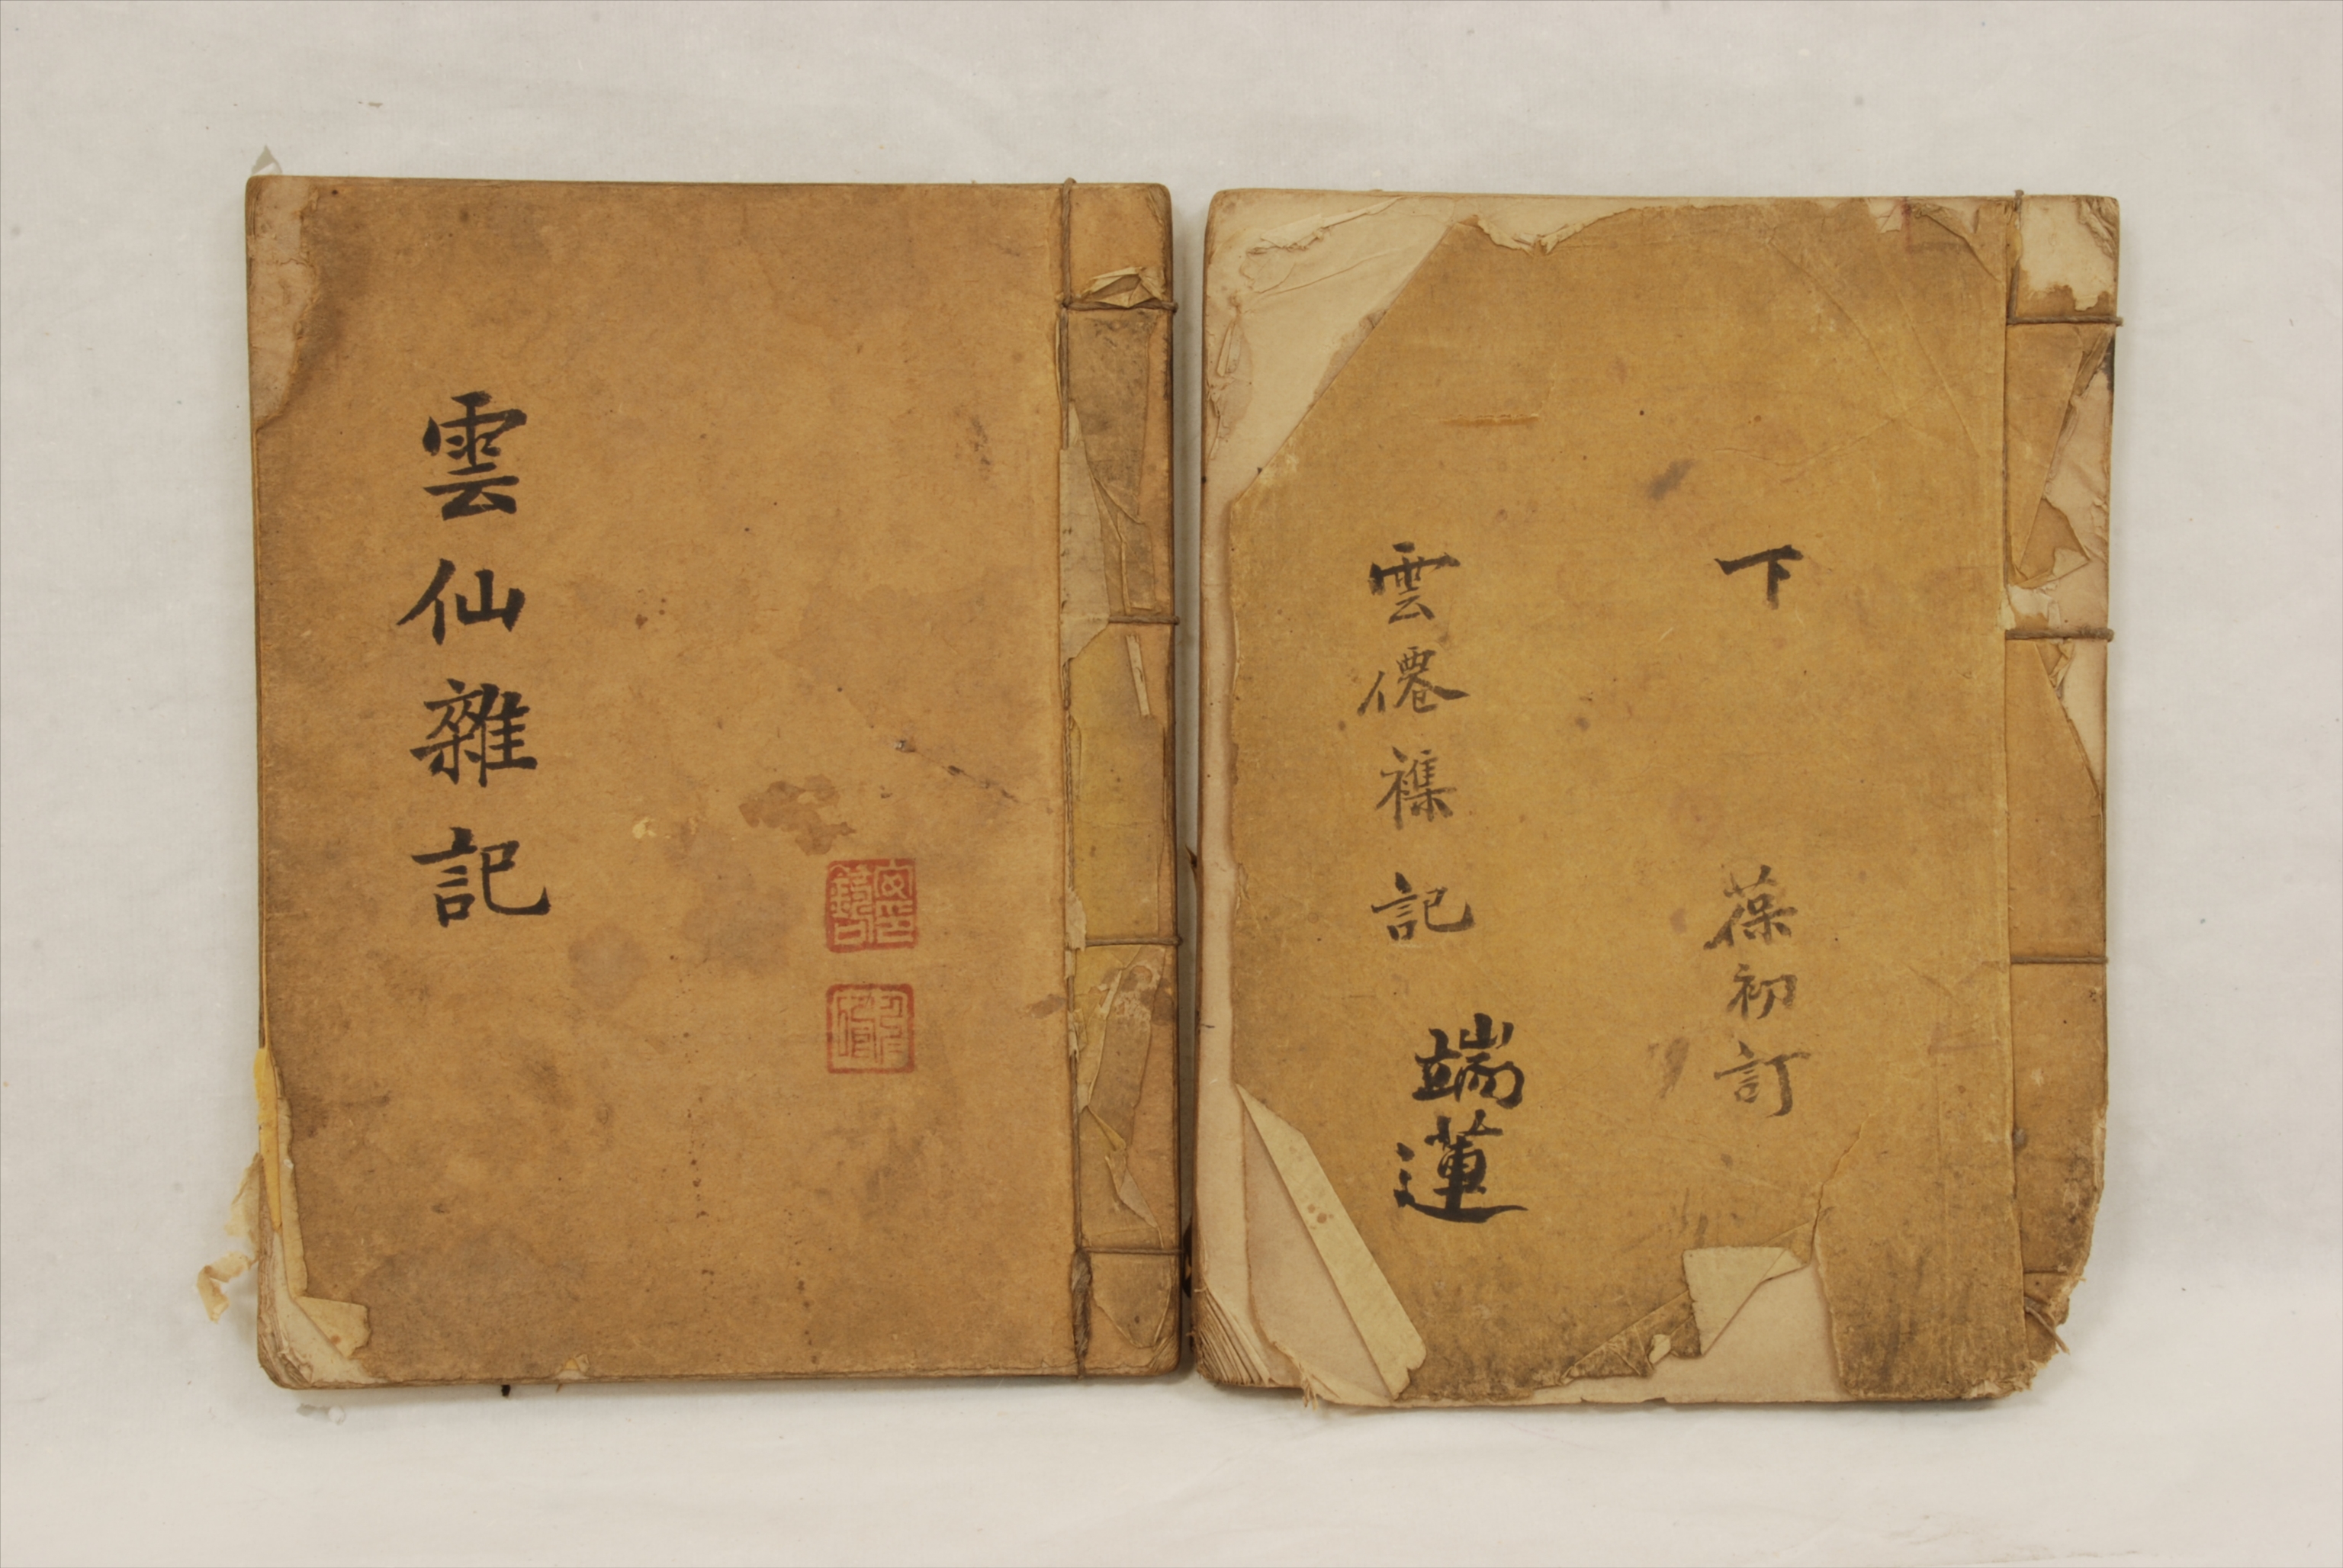 雲仙雜記
下
葆初訂
雲僊襍記
端蓮